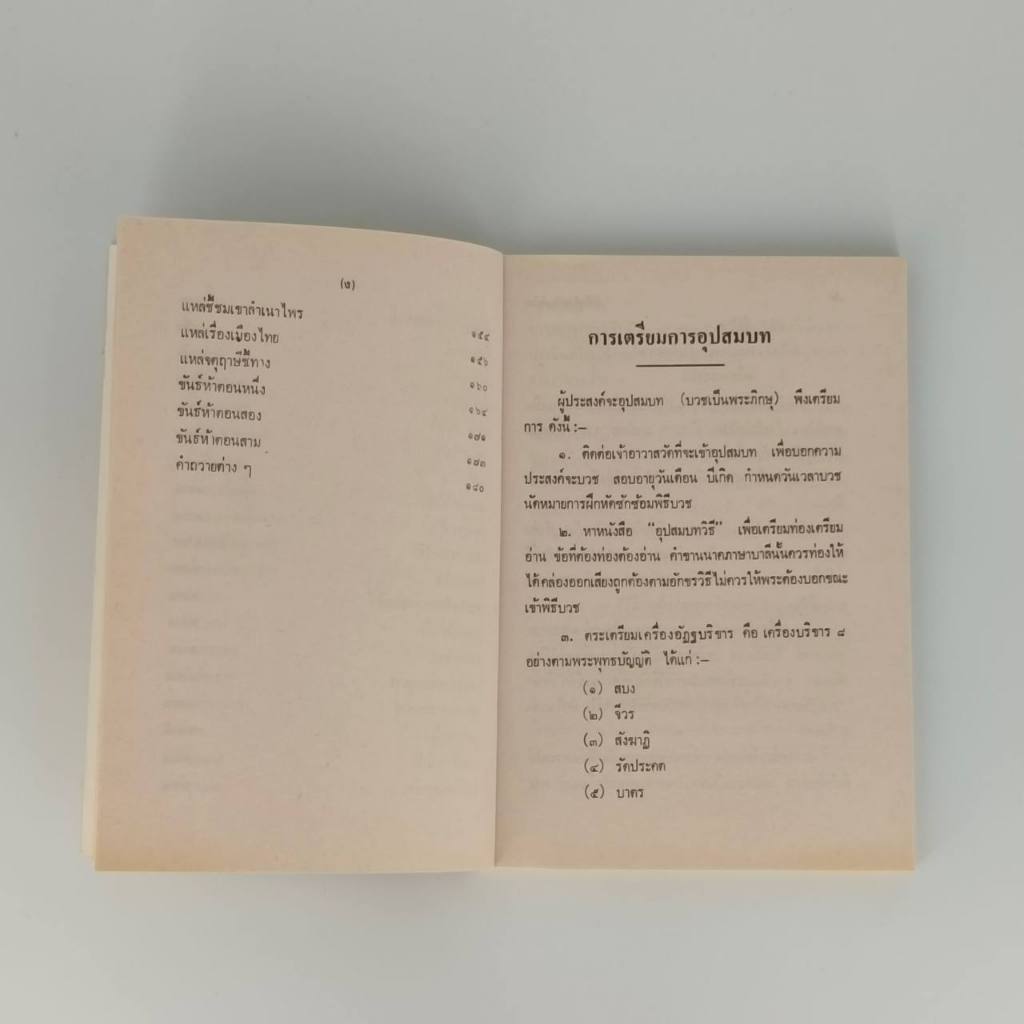 (ง)
แหล่ชี้ชมเขาลำเนาไพร ๑๕๔
แหล่เรื่องเมืองไทย ๑๕๖
แหล่จตุฤาษีชี้ทาง ๑๖๐
ขันธ์ห้าตอนหนึ่ง ๑๖๔
ขันธ์ห้าตอนสอง ๑๗๑
ขันธ์ห้าตอนสาม ๑๗๓
คำถวายต่าง ๆ ๑๘๐
การเตรียมการอุปสมบท
ผู้ประสงค์จะอุปสมบท (บวชเป็นพระภิกษุ) พึงเตรียม
การ ดังนี้ :–
๑. ติดต่อเจ้าอาวาสวัดที่จะเข้าอุปสมบท เพื่อบอกความ
ประสงค์จะบวช สอบอายุวันเดือน ปีเกิด กำหนดวันเวลาบวช
นัดหมายการฝึกหัดซักซ้อมพิธีบวช
๒. หาหนังสือ “อุปสมบทวิธี” เพื่อเตรียมท่องเตรียม
อ่าน ข้อที่ต้องท่องต้องอ่าน คำขานนาคภาษาบาลีนั้นควรท่องให้
ได้คล่องออกเสียงถูกต้องตามอักขรวิธีไม่ควรให้พระต้องบอกขณะ
เข้าพิธีบวช
๓. ตระเตรียมเครื่องอัฏฐบริขาร คือ เครื่องบริขาร ๘
อย่างตามพระพุทธบัญญัติ ได้แก่ :–
(๑) สบง
(๒) จีวร
(๓) สังฆาฏิ
(๔) รัดประคด
(๕) บาตร